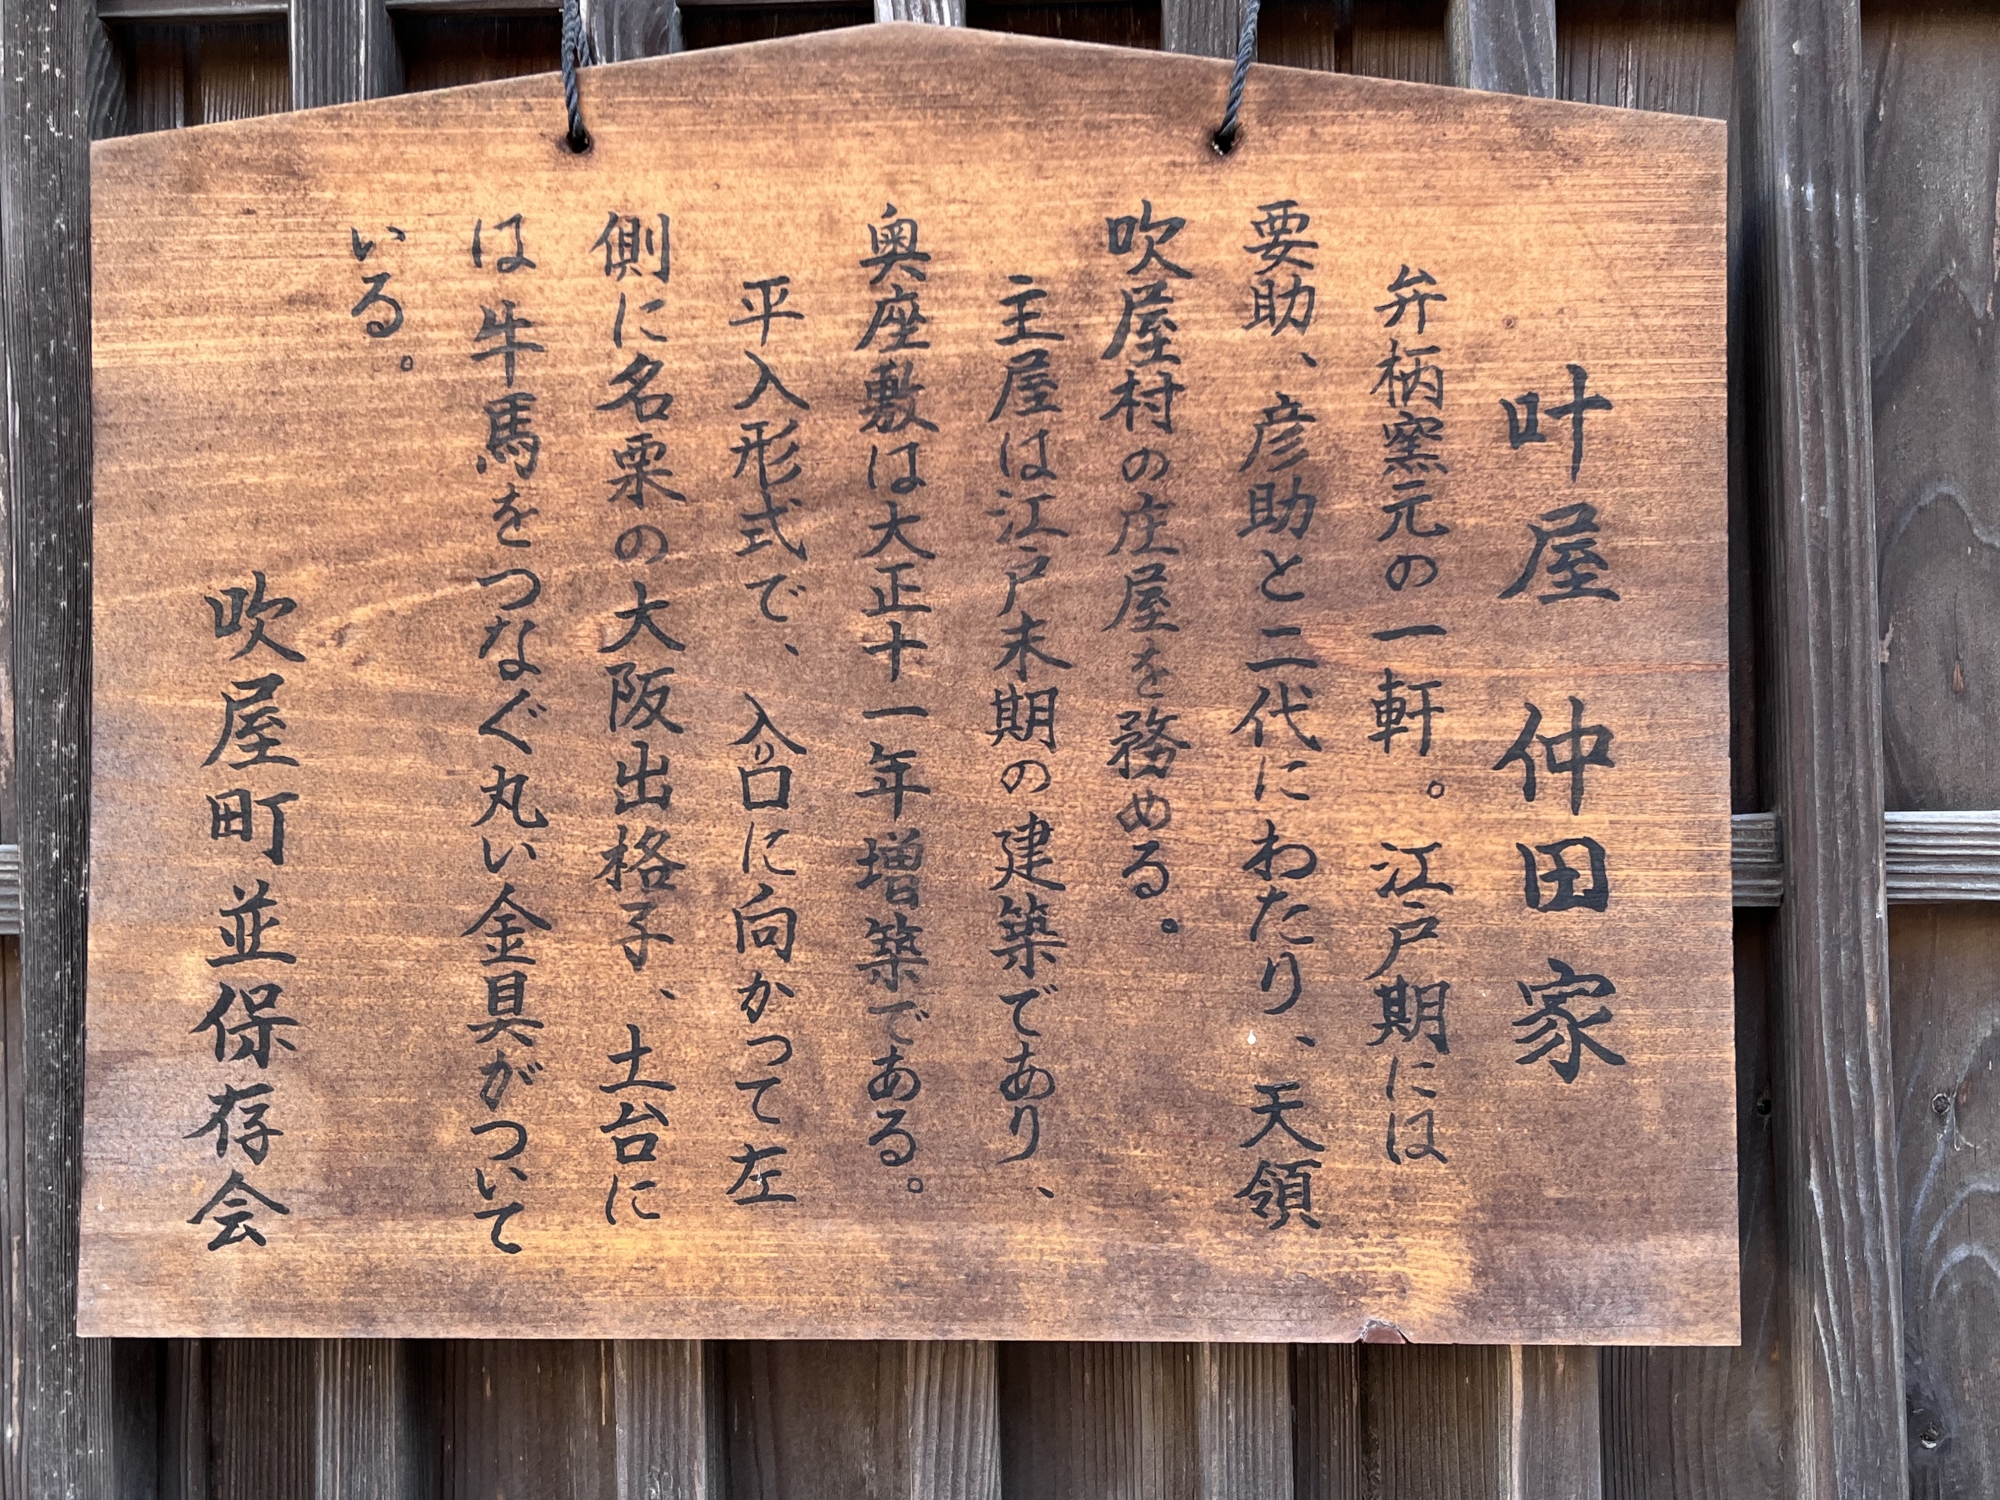 叶屋 仲田家
弁柄窯元の一軒。江戸期には
要助、彦助と二代にわたり、天領
吹屋村の庄屋を務める。
主屋は江戸末期の建築であり、
奥座敷は大正十一年増築である。
平入形式で、入り口に向かって左
側に名栗の大阪出格子、土台に
は牛馬をつなぐ丸い金具がついて
いる。
吹屋町並保存会